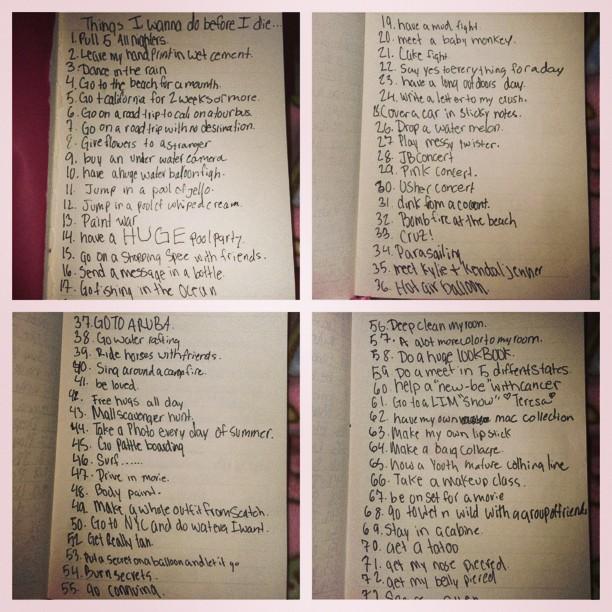 Things I wanna do before I die...
1. Pull 5 all nighters.
2. Leave my hand print in wet cement.
3. Dance in the rain
4. Go to the beach for a mounth.
5. Go t california for 2 weeks or more.
6. Go on a road trip to cali on a tour bus.
7. Go on a road trip with no desrination.
8. Give flowers to a stranger
9. buy an under water camera
10. have a huge water baloom figh.
11. Jump in a pool of jello.
12. Jump in a pool of whiped cream.
13. Paint war
14. have a HUGE pool party.
15. go on a shopping spee with friends.
16. Send a message in a bottle.
17. Go fishing in the ocean
19. have a mud fight.
20. meet a baby monkey.
21. Cake fight.
22. Say yes to every thing for a day
23. have a long outdoors day.
24. write a letter to my crush.
Cover a car in sticky notes.
26. Drop a water melon.
27 Play messy twister.
28. JB concert
29. Pink concert.
30. Usher concert
31. dink from a cocont.
32. Bomb fire at the beach
33. Cruz!
34. Parasailing
35. meet Kylie + Kendal jenner
36. Hot air balloon
37. GO TO ARUBA.
38. Go water rafting
39. Ride horses with friends.
40. Sing around a campfire.
41. be loved.
42. Free hugs all day
43. Mall scavenger hunt.
44. Take a Photo every day of summer.
45. Go Pattle boarding
46. Surf......
47. Drive in movie.
48. Body paint.
49. Make a whole outfit from Scatch.
50. Go to NYC and do watever I want.
52. Get Really tan.
53. Put a secret on a balloon and let it go
54. Burn secrets.
55. go
56. Deep clean my room.
57. A alot more color to my room.
58. Do a huge LOOK BOOK.
59. Do a meet in 5 diffent states.
60. help a "new-be" with cancer
61. Go to a LIM "show" Teresa
62. have my own mac collection
63. Make my own lipstick
64. Make a bag collage.
65. how a Youth mature colthing line
66. Take a makeup class.
67. be on set for a movie
68. go to Wet n wild with a group of friends
69. Stay in a cabine.
70. get a tatoo
71. get my nose piecred.
72. get my belly piered